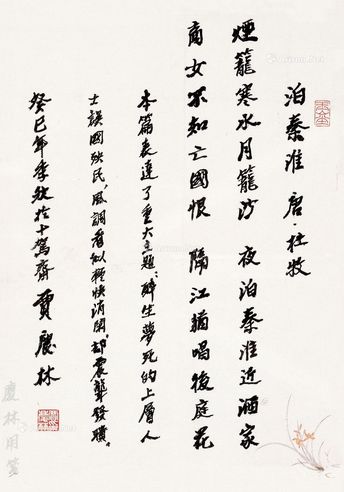 泊秦淮 唐·杜牧
煙籠寒水月籠沙 夜泊秦淮近酒家
商女不知亡國恨 隔江猶唱後庭花
本篇表達了重大主題：醉生夢死的上層人
士誤國殃民，風調看似輕快消閑，却震聾發聵。
癸巳年季秋於十駕齋 賈慶林
慶林用箋